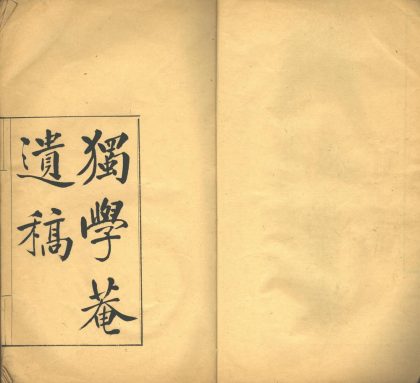 獨學菴
遺稿